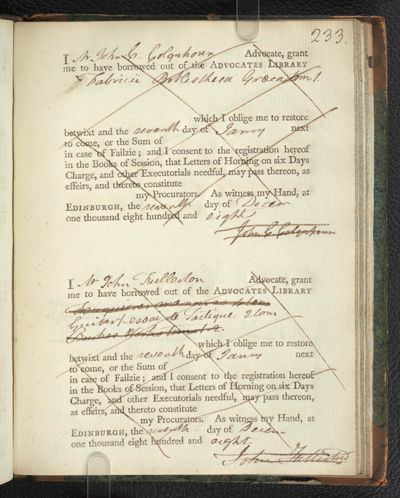 233.
I Mr John C Colquhoun Advocate, grant
me to have borrowed out of the ADVOCATES LIBRARY
Fabricii Bibliotheca Græca tom. 1
which I oblige me to restore
betwixt and the seventh day of Janry next
to come, or the Sum of
in case of Failzie; and I consent to the registration hereof
in the Books of Session, that Letters of Horning on six Days
Charge, and other Executorials needful, may pass thereon, as
effeirs, and thereto constitute
my Procurators. As witness my Hand, at
EDINBURGH, the seventh day of Decem
one thousand eight hundred and eight
John C Colquhoun
I Mr John Fullarton Advocate, grant
me to have borrowed out of the ADVOCATES LIBRARY
Guibert essai de Tactique 2 tom
which I oblige me to restore
betwixt and the seventh day of Janry next
to come, or the Sum of
in case of Failzie; and I consent to the registration hereof
in the Books of Session, that Letters of Horning on six Days
Charge, and other Executorials needful, may pass thereon,
as effeirs, and thereto constitute
my Procurators. As witness my Hand, at
EDINBURGH, the seventh day of Decem
one thousand eight hundred and eight
John Fullarton